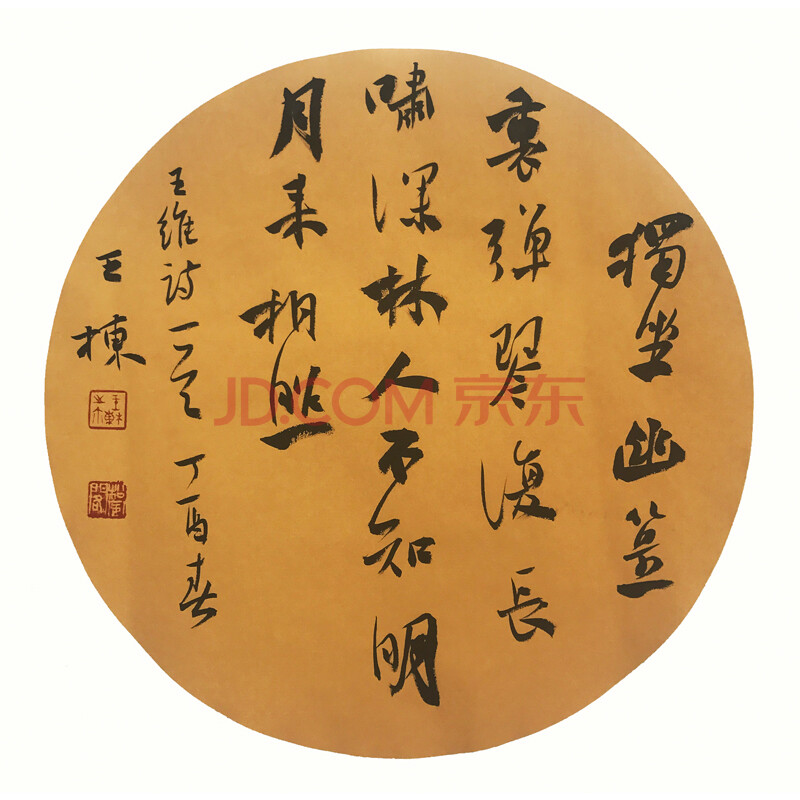 獨坐幽篁
裏彈琴復長
嘯深林人不知明
月來相照
王維詩一首 丁酉春
王棟
JD.COM 京东